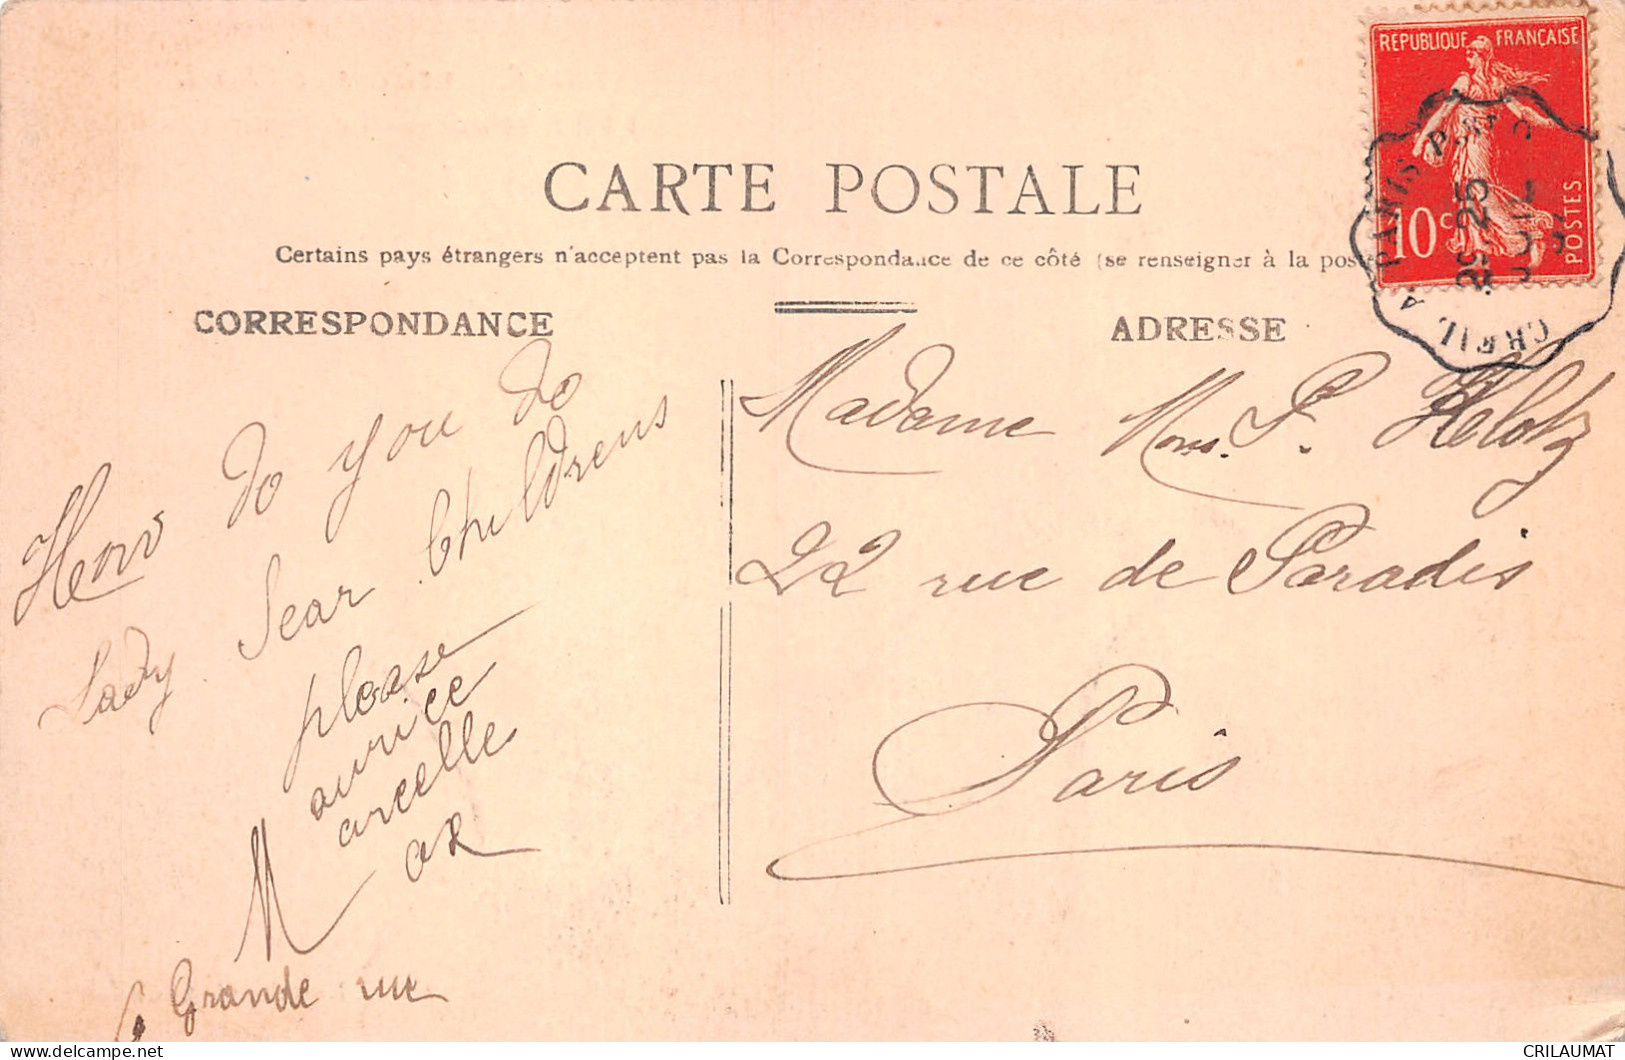 RÉPUBLIQUE FRANÇAISE
10c
POSTES
CREIL A PARIS
25
CARTE POSTALE
Certains pays étrangers n'acceptent pas la Correspondance de ce côté (se renseigner à la pos
CORRESPONDANCE
ADRESSE
How do you do
Lady dear Childrens
please
aurice
arcelle
M
6 Grande rue
Madame Mons. P. Klotz
22 rue de Paradis
Paris
CRILAUMAT